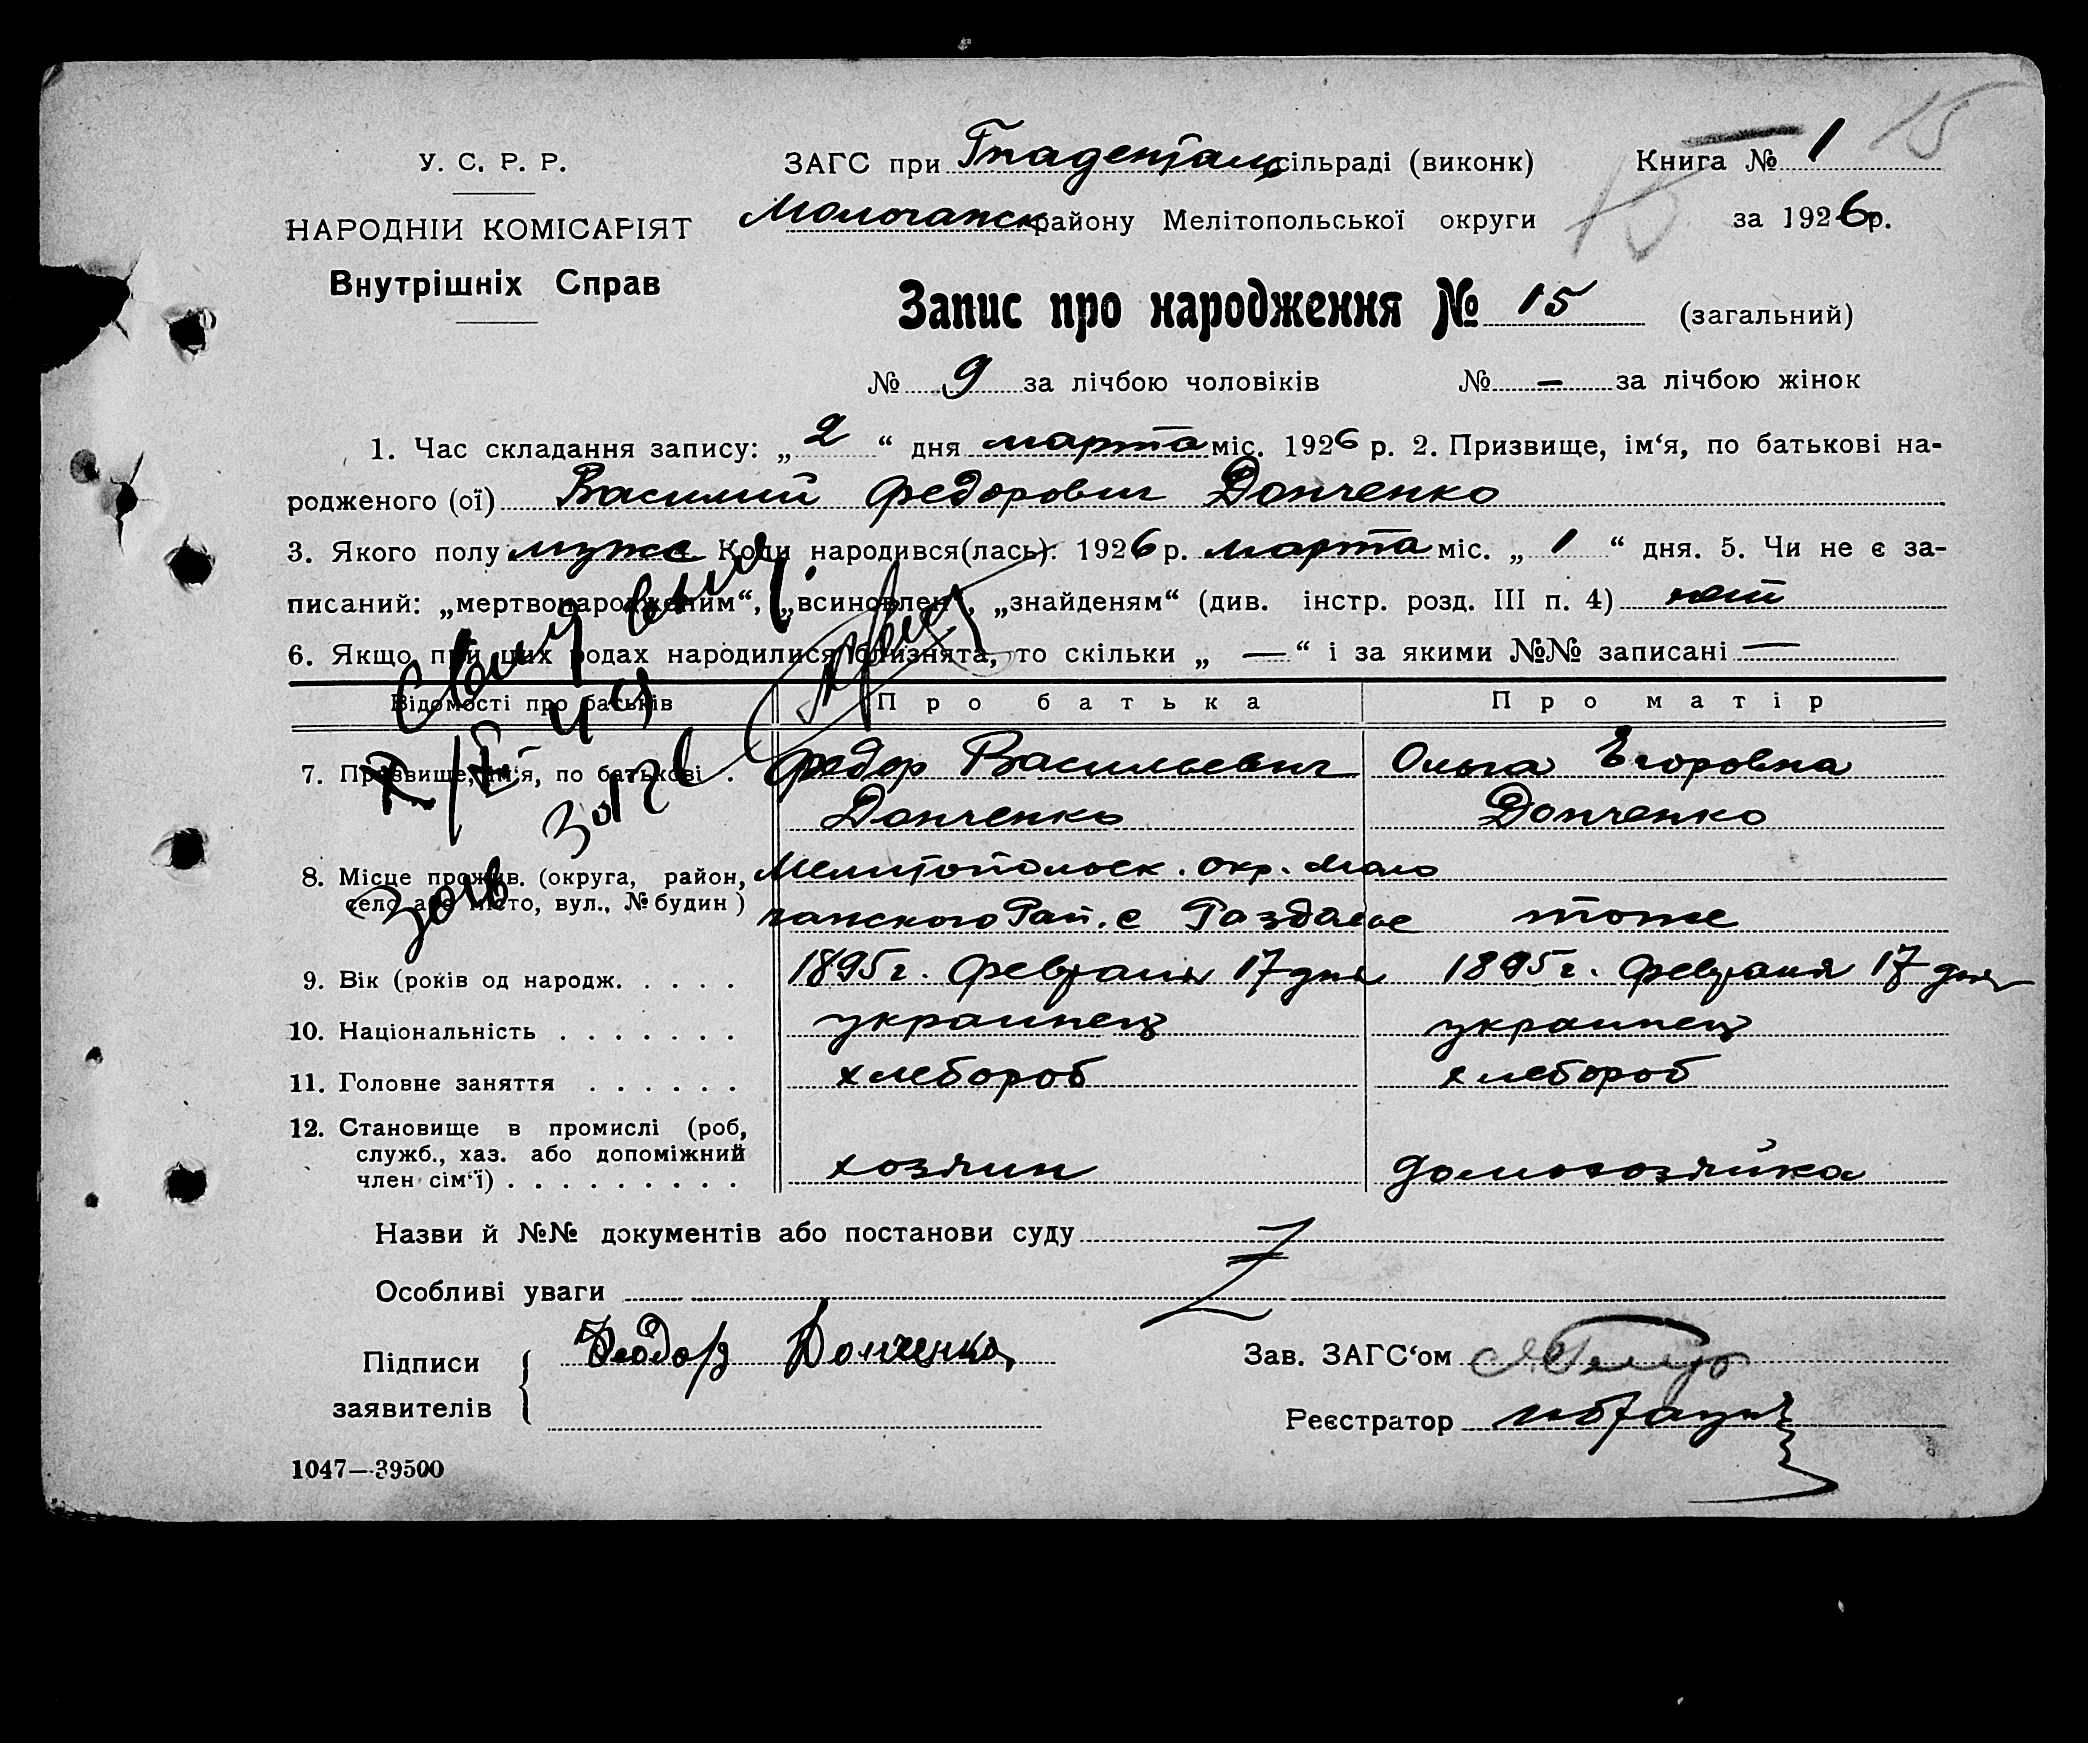 15
У. С. Р. Р.
ЗАГС при Гнаденталь сільраді (виконк) Книга № 1
НАРОДНІЙ КОМІСАРІЯТ
Молочанск району Мелітопольської округи 15 за 1926 р.
Внутрішніх Справ
Запис про народження № 15 (загальний)
№ 9 за лічбою чоловіків № — за лічбою жінок
1. Час складання запису: „2“ дня марта міс. 1926 р. 2. Призвище, ім‘я, по батькові на-
родженого (ої) Василий Федорович Донченко
3. Якого полу мужс Коли народився(лась): 1926 р. марта міс. „1“ дня. 5. Чи не є за-
писаний: „мертвонародженим“, „всиновлен“, „знайденям“ (див. інстр. розд. III п. 4) нет
6. Якщо при цих родах народилися близнята, то скільки „—“ і за якими №№ записані —
Відомості про батьків Про батька Про матір
7. Призвище, ім‘я, по батькові . Федор Васильевич Ольга Егоровна
Донченко Донченко
8. Місце прожив. (округа, район, Мелитопольск. Окр. Моло
село або місто, вул., № будин) чанского Рай. с тоже
9. Вік (років од народж. . . . . 1895 г. Февраля 17 дня 1895 г. Февраля 17 дня
10. Національність . . . . . . . украинец украинец
11. Головне заняття . . . . . . хлебороб хлебороб
12. Становище в промислі (роб,
служб., хаз. або допоміжний
член сім‘ї) . . . . . . . . . хозяин домохозяйка
Назви й №№ документів або постанови суду
Особливі уваги
Підписи Феодор Донченко
Зав. ЗАГС‘ом
заявителів
Реєстратор
1047—39500